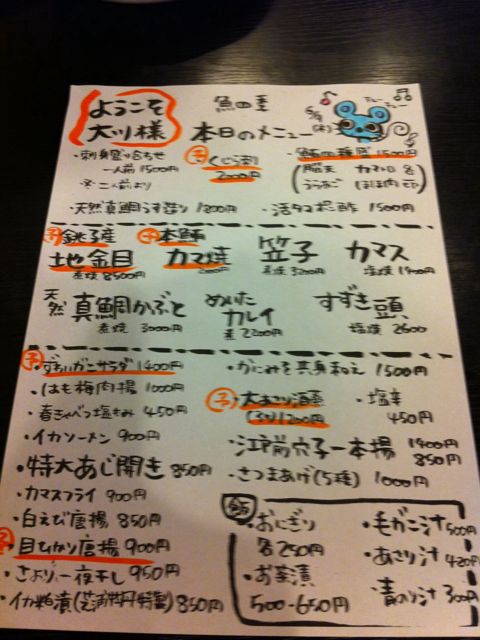 ようこそ
大川様
魚四季
本日のメニュー
5/9
(木)
・刺身盛り合わせ
一人前 1500円
二人前より
くじら刺
2000円
1500円
脳天 カマトロ
ほほ肉
・天然真鯛うす造り 1800円
・活タコ ポン酢 1500円
銚子産
地金目
煮焼 8500円
本鮪
カマ焼
2000円
笠子
煮焼 3200円
カマス
塩焼 1900円
天然 真鯛かぶと
煮焼 3000円
めいた
カレイ
煮 2200円
すずき頭
塩焼 2600
・ずわいガニサラダ 1400円
・はも梅肉揚 1000円
・春きゃべつ塩もみ 450円
・イカソーメン 900円
・特大あじ開き 850円
・カマスフライ 900円
・白えび唐揚 850円
・目ひかり唐揚 900円
・さより一夜干し 950円
・イカ粕漬(芝浦牡丹特製) 850円
・かにみそ共身和え 1500円
・大あさり酒蒸
1200円
・塩辛
450円
・江戸前穴子一本揚 1400円
850円
・さつまあげ(5種) 1000円
飯
・おにぎり
各250円
・お茶漬
500-650円
・毛ガニ汁 500円
・あさり汁 420円
・青のり汁 300円